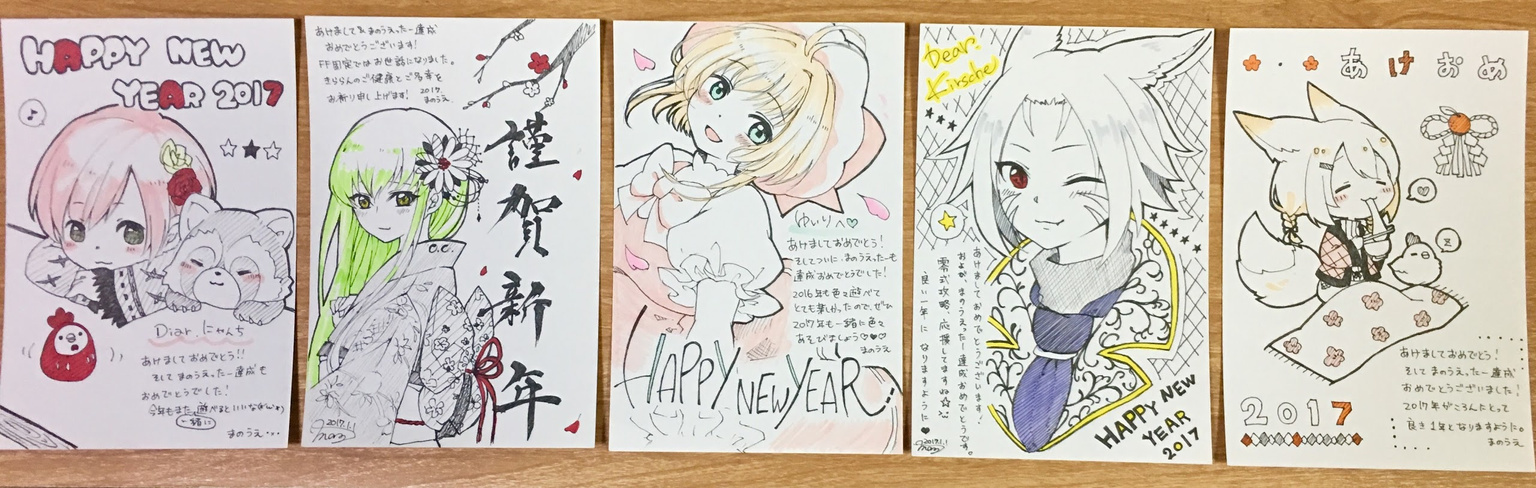 HAPPY NEW
YEAR 2017
Diar にゃんち
あけましておめでとう!!
そして まのうえったー達成も
おめでとうでした!
今年もまた遊べるといいな
一緒に
まのうえ
あけまして&まのうぇったー達成
おめでとうございます!
FF・固定ではお世話になりました。
きららんのご健康とご多幸を
お祈り申し上げます! 2017.
まのうえ
謹賀新年
C.C.
2017.1.1
ゆいりへ♡
あけましておめでとう!
そしてついに、まのうえったーも
達成おめでとうでした!
2016年も色々遊べて
とても楽しかったので、ぜひ
2017年も一緒に色々
あそびましょう♡♥♡
まのうえ
HAPPY NEW YEAR
Dear.
Kirsche
あけましておめでとうございます.
およびまのうえったー達成おめでとうです。
零式攻略、応援してますね☆
良い一年になりますように♥
2017.1.1
HAPPY NEW
YEAR
2017
あけおめ
あけましておめでとう!
そしてまのうえったー達成
おめでとうございました!
2017年がころんたとって
良き1年となりますように。
まのうえ
2017